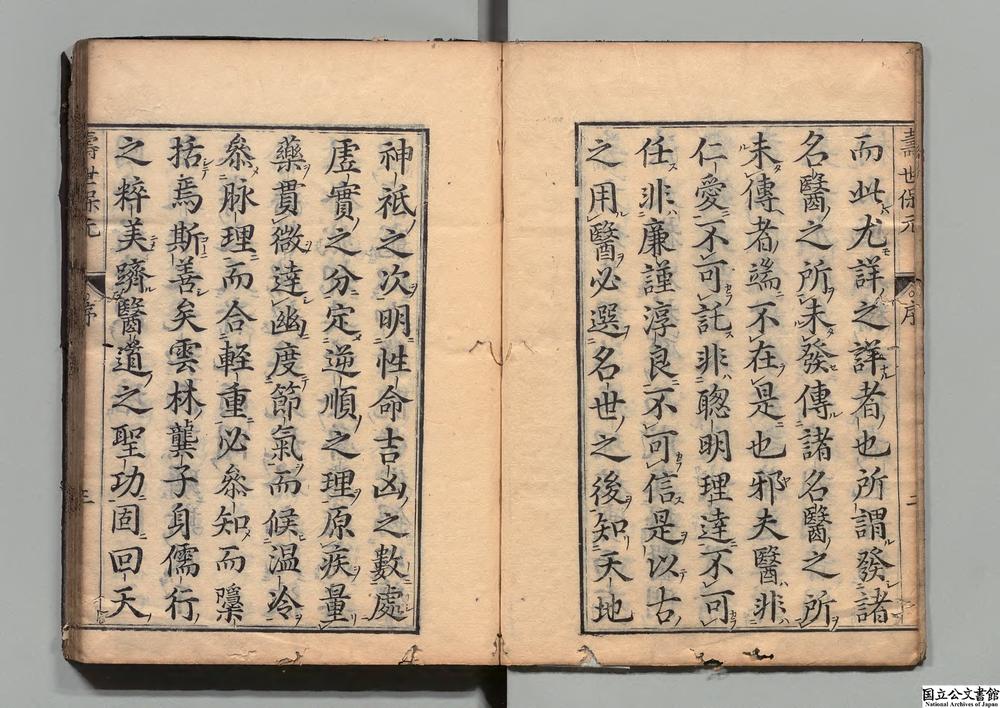 壽世保元
序
二
而此尤詳之詳者也所謂發諸
名醫之所未發傳諸名醫之所
未傳者端不在是也邪夫醫非
仁愛不可託非聰明理達不可
任非廉謹淳良不可信是以古
之用醫必選名世之後知天地
神祇之次明性命吉凶之數處
虚實之分定逆順之理原疾量
藥貫微達幽度節氣而候温冷
叅脉理而合輕重必叅知而隱
括焉斯善矣雲林龔子身儒行
之粹美躋醫道之聖功固回天
壽世保元
序
三
国立公文書館
National Archives of Japan